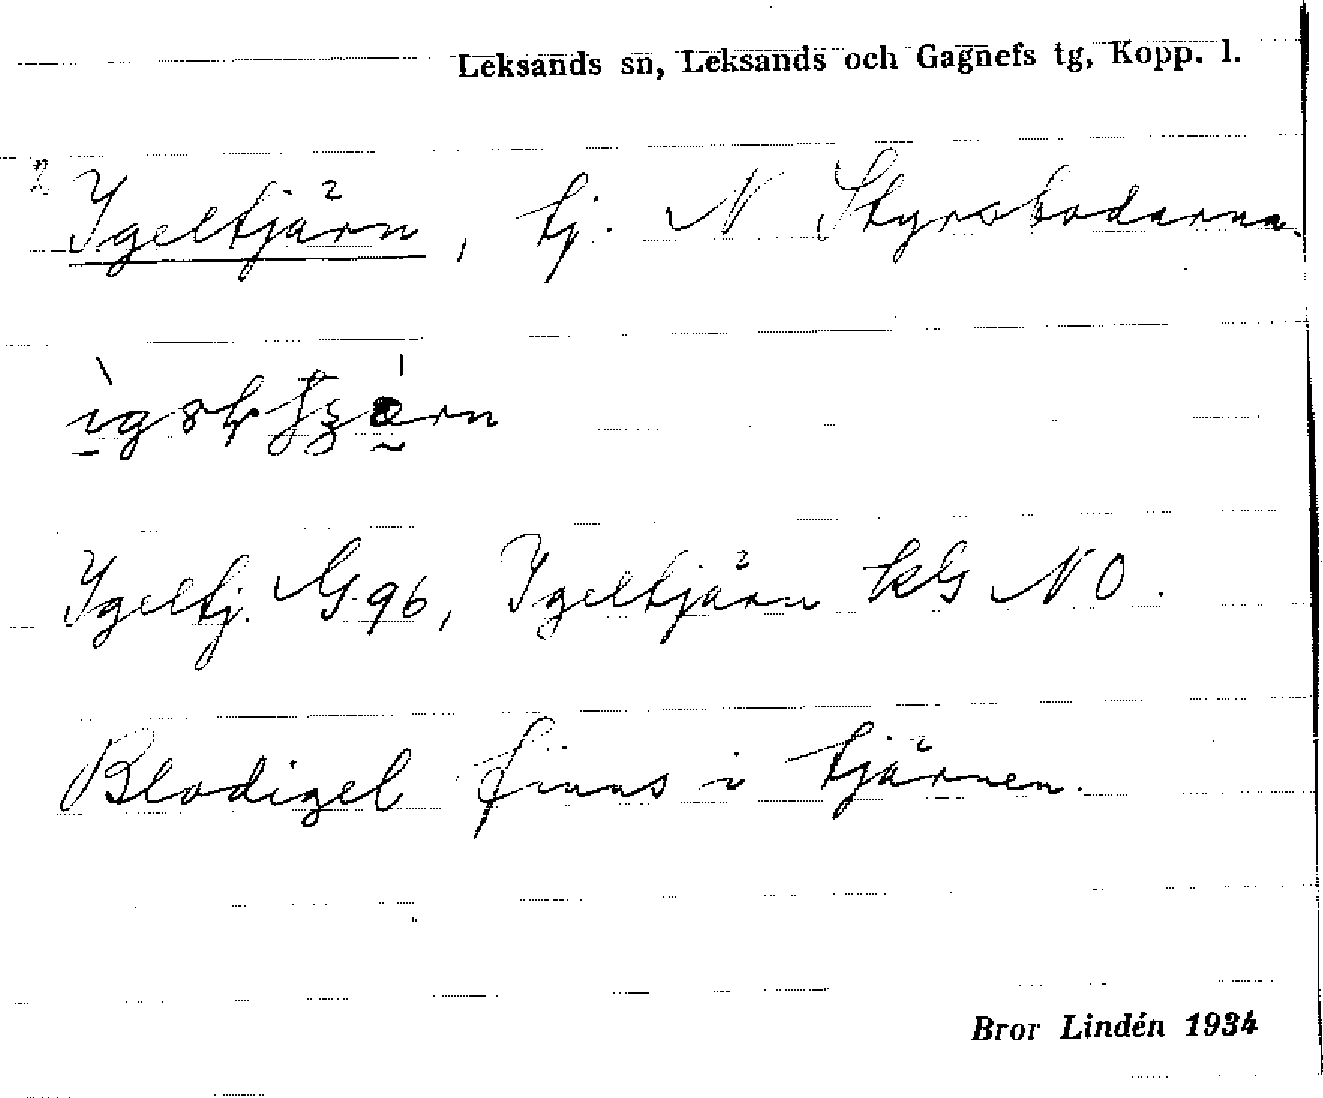 Leksands sn, Leksands och Gagnefs tg, Kopp. l.
Igeltjärn, tj. N Styrsbodarna.
Igeltj. G. 96, Igeltjärn kG NO.
Blodigel finns i tjärnen.
Bror Lindén 1934